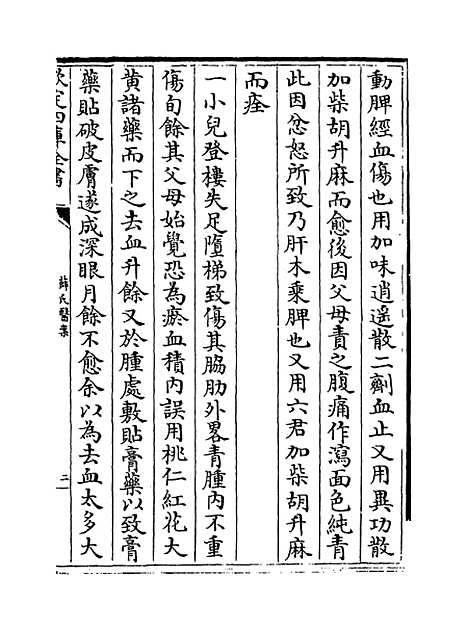 動脾經血傷也用加味逍遥散二劑血止又用異功散
加柴胡升麻而愈後因父母責之腹痛作瀉面色純青
此因忿怒所致乃肝木乘脾也又用六君加柴胡升麻
而痊
一小兒登樓失足墮梯致傷其脇肋外畧青腫内不重
傷旬餘其父母始覺恐為瘀血積内誤用桃仁紅花大
黄諸藥而下之去血升餘又於腫處敷貼膏藥以致膏
藥貼破皮膚遂成深眼月餘不愈余以為去血太多大
欽定四庫全書
薛氏醫案
二